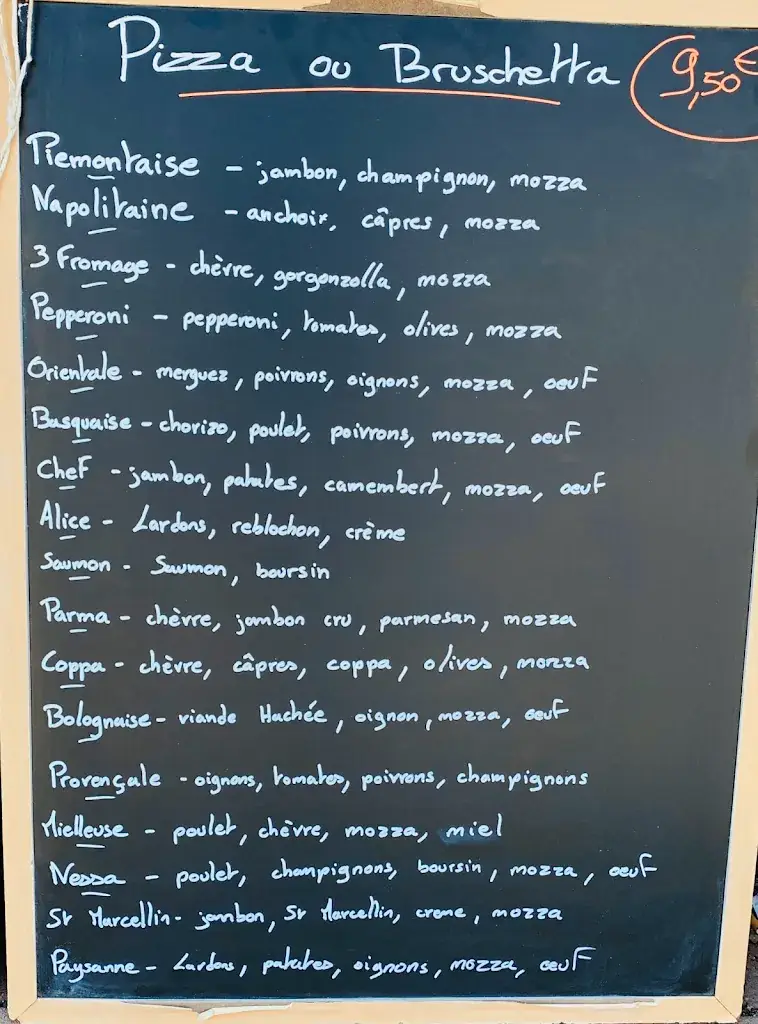 Pizza ou Bruschetta 9,50€
Piemontaise - jambon, champignon, mozza
Napolitaine - anchoix, câpres, mozza
3 Fromage - chèvre, gorgonzolla, mozza
Pepperoni - pepperoni, tomates, olives, mozza
Orientale - merguez, poivrons, oignons, mozza, oeuf
Basquaise - chorizo, poulet, poivrons, mozza, oeuf
Chef - jambon, patates, camembert, mozza, oeuf
Alice - Lardons, reblochon, crème
Saumon - Saumon, boursin
Parma - chèvre, jambon cru, parmesan, mozza
Coppa - chèvre, câpres, coppa, olives, mozza
Bolognaise - viande Hachée, oignon, mozza, oeuf
Provençale - oignons, tomates, poivrons, champignons
Mielleuse - poulet, chèvre, mozza, miel
Nessa - poulet, champignons, boursin, mozza, oeuf
St Marcellin - jambon, St Marcellin, creme, mozza
Paysanne - Lardons, patates, oignons, mozza, oeuf